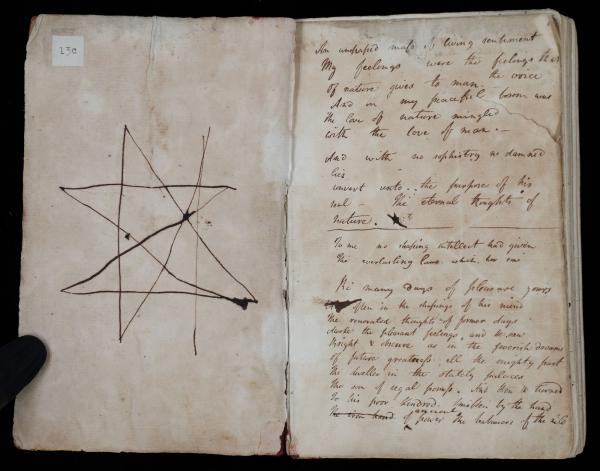 13c
An unshaped mass of living sentiment
My feelings were the feelings that
Of nature gives to man. the voice
And on my peaceful bosom was
The love of nature mingled
with the love of man. —
And with no sophistry no damned
lies
unvert unto.. the purpose of his
soul – The eternal thoughts of
nature.
To me no shaping intellect had given
The everlasting laws which her own
The many days of pleasure yours
often in the shapings of his mind
The renovated thoughts of former days
awoke the pleasant feelings, and he saw
Bright & obscure as in the feverish dreams
of future greatness all the mighty past
The dweller in the stately palaces
The son of regal pomp. And then he turned
To his poor kindred. Smitten by the hand
The iron hand of ancient power the balances of the nile